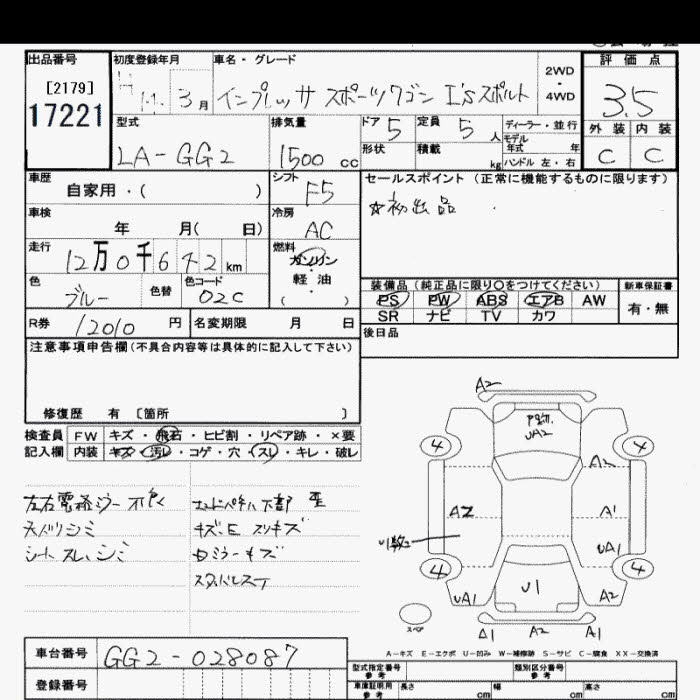 出品番号 初度登録年月 車名・グレード 評価点
[2179] 17221
H 14. 3月 インプレッサ スポーツワゴン I'sスポルト 2WD・4WD 3.5
型式 排気量 ドア 5 定員 5人 ディーラー・並行 外装 内装
LA-GG2 1500cc 形状 積載 kg モデル年式 年 ハンドル 左・右 C C
車歴 自家用・( ) シフト F5 セールスポイント(正常に機能するものに限ります)
車検 年 月( 日) 冷房 AC ☆初出品
走行 12万0千642km 燃料 ガソリン 軽油 ( )
色 ブルー 色替 色コード 02C 装備品(純正品に限り○をつけてください) 新車保証書
PS PW ABS エアB AW 有・無
SR ナビ TV カワ
R券 12010円 名変期限 月 日 後日品
注意事項申告欄(不具合内容等は具体的に記入して下さい)
修復歴 有 〔箇所 〕
検査員 FW キズ・飛石・ヒビ割・リペア跡・×要
記入欄 内装 キズ・汚レ・コゲ・穴・スレ・キレ・破レ
左右電格ミラー不良
天バリシミ 下部
シートスレ、シミ
キズ、E スリキズ
ミラーキズ
スタッドレス
A2
UA2
4 4
A2
A2 A1
U1 UA1
4 4
UA1 U1 A2
スペア
A1 A2 A1
A-キズ E-エクボ U-凹み W-補修跡 S-サビ C-腐食 XX-交換済
車台番号 GG2-028087 型式指定番号 参考 類別区分番号 参考
登録番号 車庫証明用 参考 長さ cm 幅 cm 高さ cm